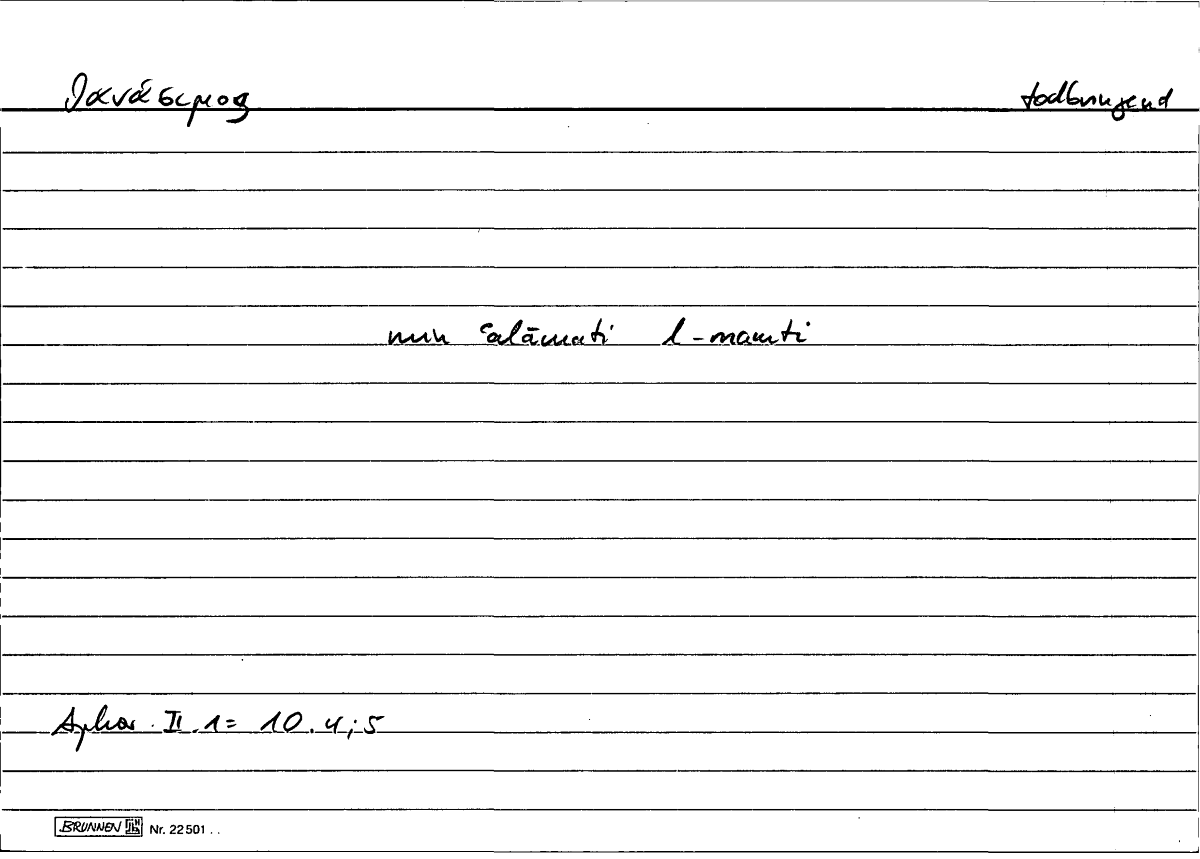 θανάσιμος todbringend
min ʿalāmati l-mauti
Aphor. II.1 = 10.4;5
BRUNNEN Nr. 22501 . .